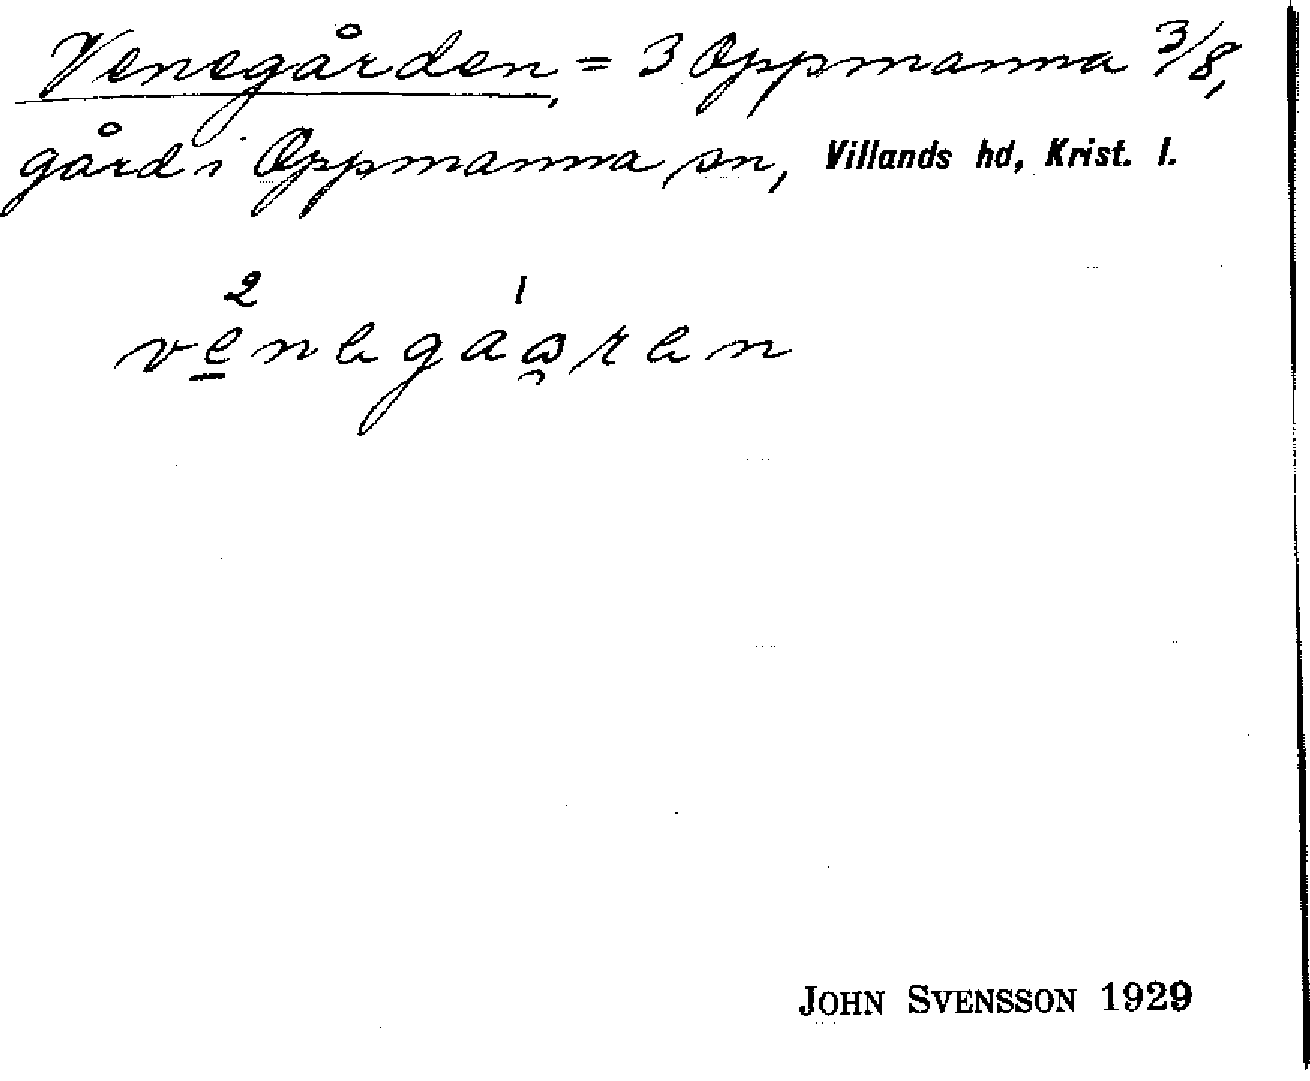 Venegården, = 3 Oppmanna 3/8,
gård i Oppmanna sn, Villands hd, Krist. l.
2 1
venegaaren
JOHN SVENSSON 1929